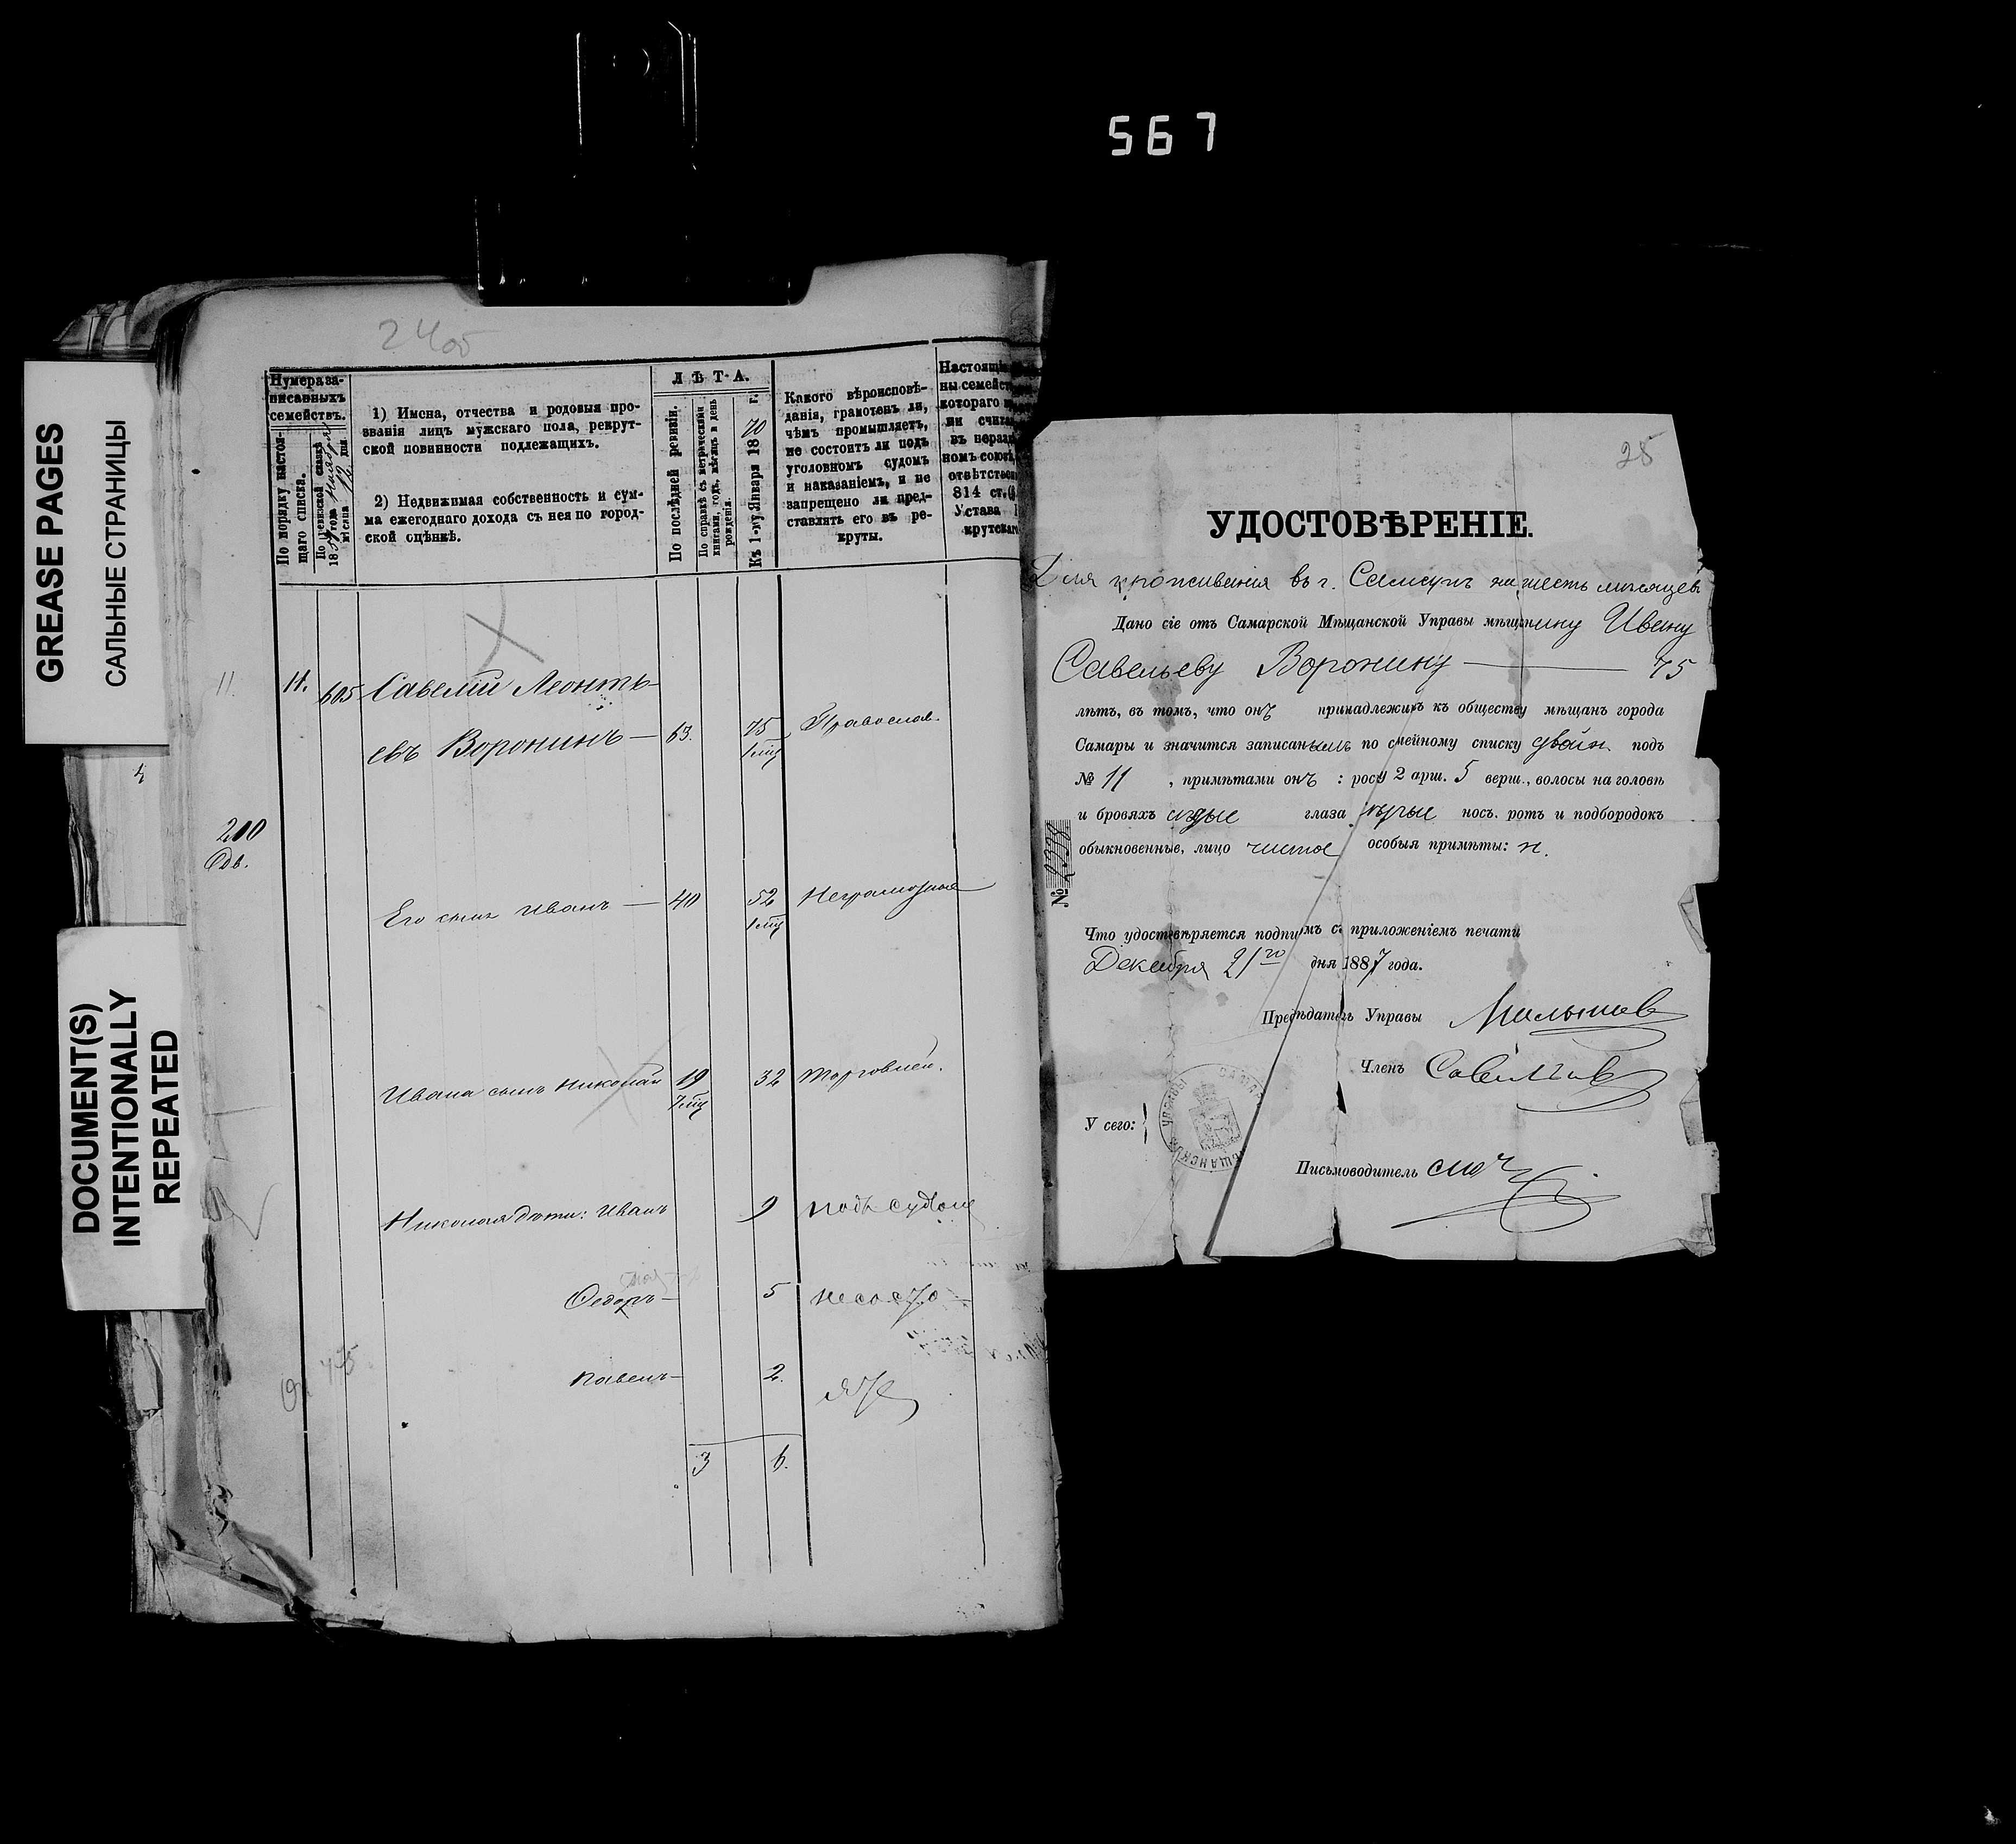 567
GREASE PAGES
САЛЬНЫЕ СТРАНИЦЫ
DOCUMENT(S)
INTENTIONALLY
REPEATED
24об
Нумера за-
писанныхъ
семействъ.
По порядку настоя-
щаго списка.
По ревизской сказкѣ
1857 года Ноября
мѣсяца 12 дня.
1) Имена, отчества и родовыя про-
званія лицъ мужскаго пола, рекрут-
ской повинности подлежащихъ.
2) Недвижимая собственность и сум-
ма ежегоднаго дохода съ нея по город-
ской оцѣнкѣ.
ЛѢТА.
По послѣдней ревизіи.
По справкѣ съ метрическими
книгами, годъ, мѣсяцъ и день
рожденія.
Къ 1-му Января 1870 г.
Какого вѣроисповѣ-
данія, грамотенъ ли,
чѣмъ промышляетъ,
не состоитъ ли подъ
уголовномъ судомъ
и наказаніемъ, и не
запрещено ли пред-
ставлять его въ ре-
круты.
Настоящі
ны семейст
котораго
ли счита
въ нераз
номъ союзѣ
отвѣтстве
814 ст.
Устава
крутскаго
11. 11. 605 Савелій Леонть-
евъ Воронинъ — 63. 75 Православ.
1 мц
200
Его сынъ Иванъ — 40 52 Неграмотные
1 мц
Ивана сынъ Николай 19 32 торговлей.
7 мц
Николая дѣти: Иванъ 9 подъ судомъ
Ѳедоръ — 5 не состо-
Павелъ — 2. ятъ
3 6.
25
УДОСТОВѢРЕНІЕ.
Для проживанія въ г. Самарѣ на шесть мѣсяцевъ
Дано сіе отъ Самарской Мѣщанской Управы мѣщанину Ивану
Савельеву Воронину — 75
лѣтъ, въ томъ, что онъ принадлежитъ къ обществу мѣщанъ города
Самары и значится записаннымъ по семейному списку двойн. подъ
№ 11 , примѣтами онъ : росту 2 арш. 5 верш., волосы на головѣ
и бровяхъ сѣдые глаза сѣрые носъ. ротъ и подбородокъ
обыкновенные, лицо чистое особыя примѣты: н.
№ 2398
Что удостовѣряется подписомъ съ приложеніемъ печати
Декабря 21го дня 1887 года.
Предсѣдатель Управы
Членъ
У сего:
Письмоводитель